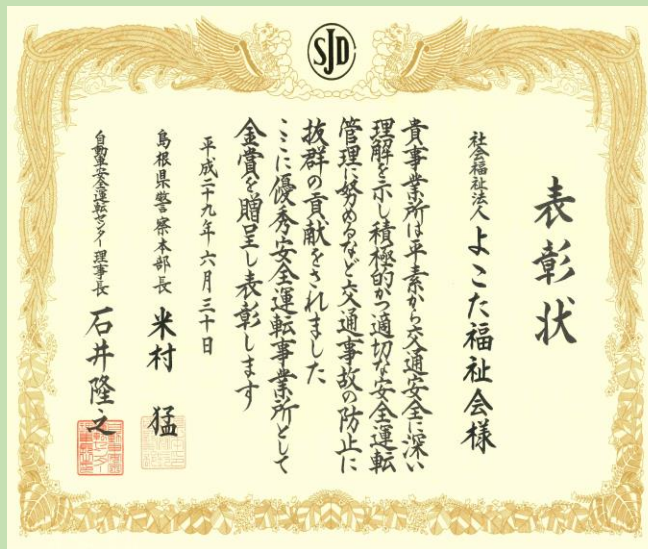 SJD
表彰状
社会福祉法人 よこた福祉会様
貴事業所は平素から交通安全に深い
理解を示し積極的かつ適切な安全運転
管理に努めるなど交通事故の防止に
抜群の貢献をされました
ここに優秀安全運転事業所として
金賞を贈呈し表彰します
平成二十九年六月三十日
島根県警察本部長 米村 猛
自動車安全運転センター理事長 石井隆之